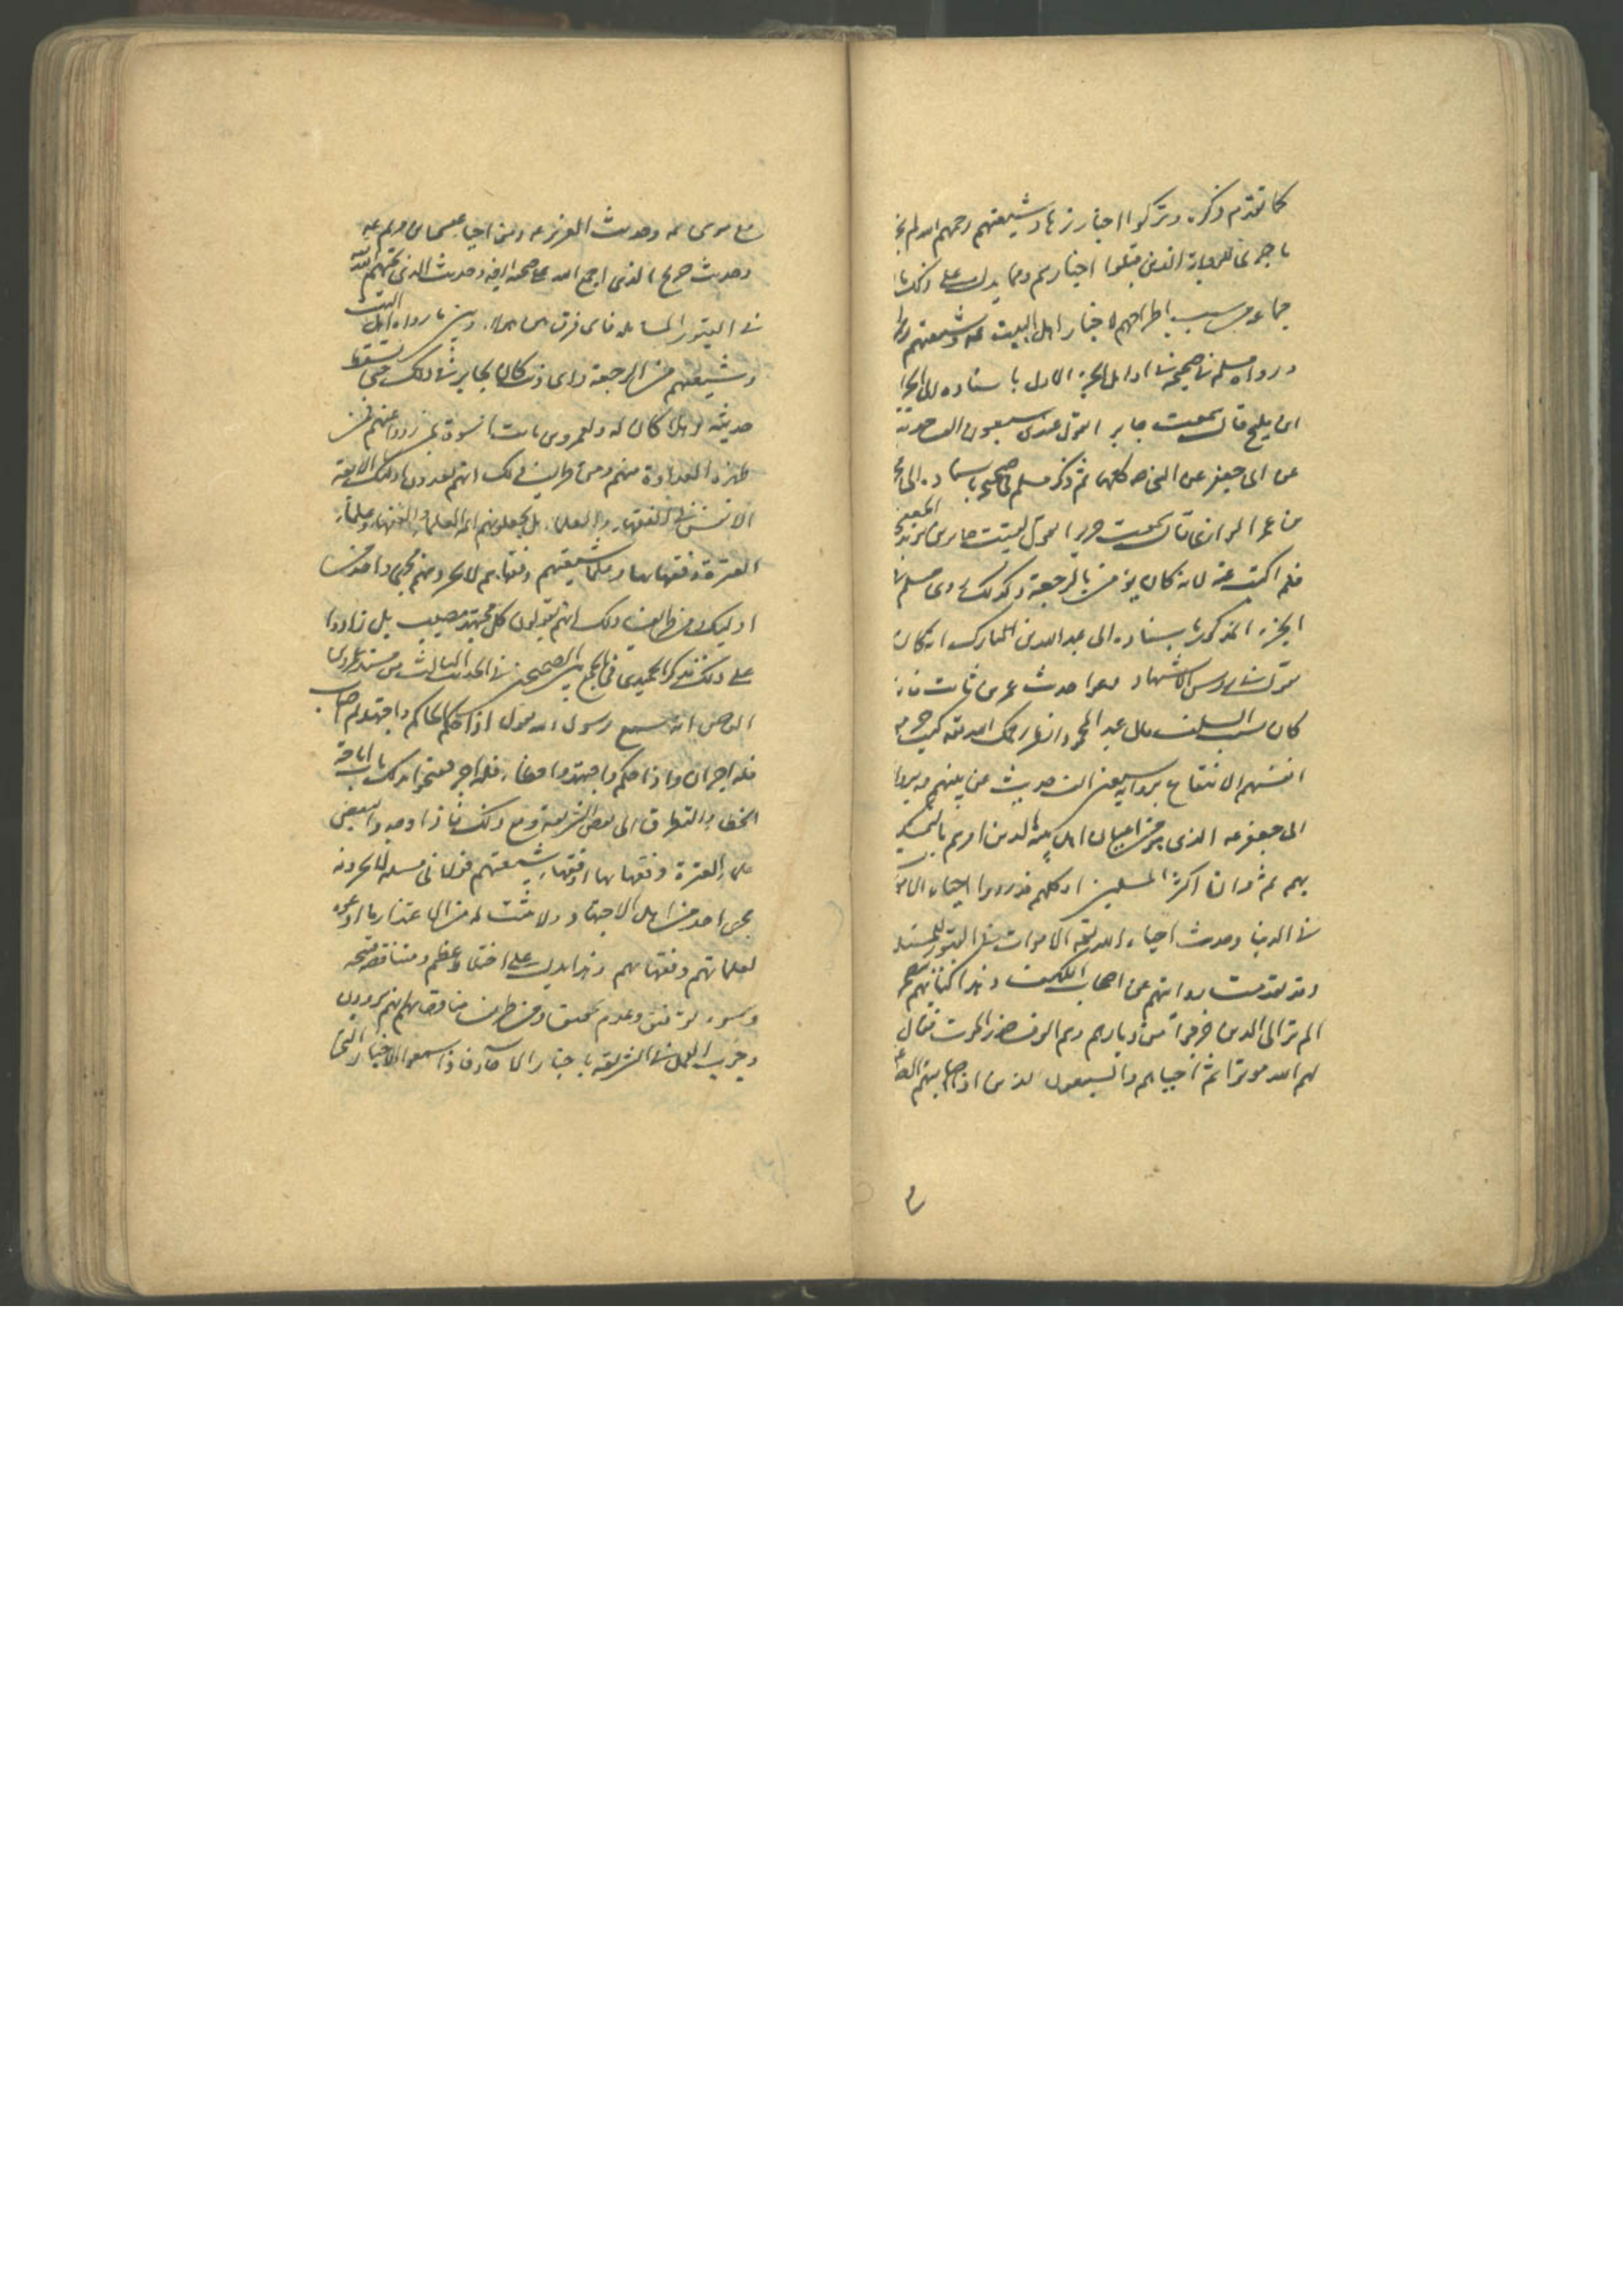 كما تقدم ذكره وتركوا اخبار زهاد شيعتهم رحمهم الله لم
ما جرى للصحابة الذين قبلوا اخبارهم ومما يدل على ذلك
جماعة سبب اطراحهم لاخبار اهل البيت عه وشيعتهم
رواه مسلم في صحيحه في اوايل الجزء الاول باسناده الى الجراح
ابن مليح قال سمعت جابرا يقول عندي سبعون الف حديث
عن ابي جعفر عن النبي ص كلها ثم ذكر مسلم في صحيحه باسناده الى
محمد بن عمر الرازي قال سمعت حريرا يقول لقيت جابر بن يزيد الجعفي
فلم اكتب عنه لانه كان يؤمن بالرجعة وكذلك روى مسلم في
الجزء المذكور باسناده الى عبد الله بن المبارك انه كان
يقول على روس الاشهاد دعوا حديث عمرو بن ثابت فانه
كان يسب السلف قال عبد المحمود انظر رحمك الله تعه كيف حرموا
انفسهم الانتفاع برواية سبعين الف حديث عن نبيهم ص برواية
ابي جعفر عه الذي هو من اعيان اهل بيته الذين امرهم بالتمسك
بهم ثم وان اكثر المسلمين او كلهم قد رووا احياء الاموات
في الدنيا وحديث احياء الله تعه الاموات في القبور للمسئلة
وقد تقدمت روايتهم عن اصحاب الكهف وهذا كتابهم يتضمن
الم تر الى الذين خرجوا من ديارهم وهم الوف حذر الموت فقال
لهم الله موتوا ثم احياهم والسبعون الذين اصابتهم الصاعقة
مع موسى عه وحديث العزير عه ومن احياه عيسى بن مريم عه
وحديث جريح الذي اجمع الله على صحته ايضا وحديث الذين يحييهم الله
في القبور للمسايلة فاي فرق بين هؤلاء وبين ما رواه اهل البيت
وشيعتهم من الرجعة واي ذنب كان لجابر في ذلك حتى يسقط
حديثه
هذه العداوة منهم ومن طرايف ذلك انهم يعدون اولئك الاربعة
الانفس في الفقهاء والعلماء بل يجعلونهم ائمة العلماء والفقهاء وعلماء
العترة وفقهاءها وعلماء شيعتهم وفقهاءهم لا يجرونهم مجرى واحد منهم
او ليكن من طرايف ذلك انهم يقولون كل مجتهد مصيب بل زادوا
على ذلك فذكر الحميدي في الجمع بين الصحيحين في الحديث الثالث من مسند عمرو بن
العاص انه سمع رسول الله يقول اذا حكم الحاكم واجتهد ثم اصاب
فله اجران واذا حكم واجتهد واخطاء فله اجر ففتحوا بذلك باب اباحة
الخطاء والتطرق الى بعض الشريعة ومع ذلك فاذا وجدوا لبعض
علماء العترة وفقهاءها او فقهاء شيعتهم قولا في مسئلة لا يجرونه
مجرى احد من اهل الاجتهاد ولا يثبت له من الاعتذار ما ادعوه
لعلمائهم وفقهائهم وهذا يدل على اختلاف عظيم ومناقضة قبيحة
وسوء توفيق وعدم تحقيق ومن طرايف مناقضاتهم انهم يروون
وجوب العمل في الشريعة باخبار الاحاد فاذا سمعوا الاخبار التي